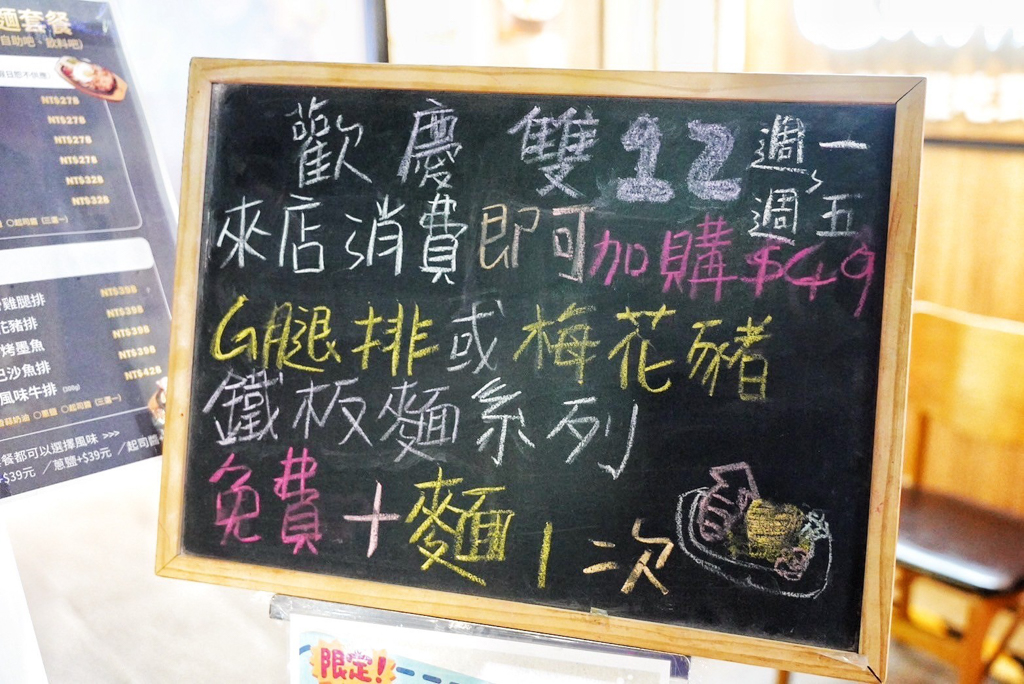 歡慶 雙12 週一、週五
來店消費即可加購$49
G腿排或梅花豬
鐵板麵系列
免費+麵1二次
麵套餐
NT$278
NT$278
NT$278
NT$278
NT$328
NT$328
NT$398
雞腿排 NT$398
花豬排 NT$398
烤墨魚 NT$398
巴沙魚排 NT$428
風味牛排
餐都可以選擇風味 >>>
+$39元 /蔥鹽+$39元 /起司醬
限定!